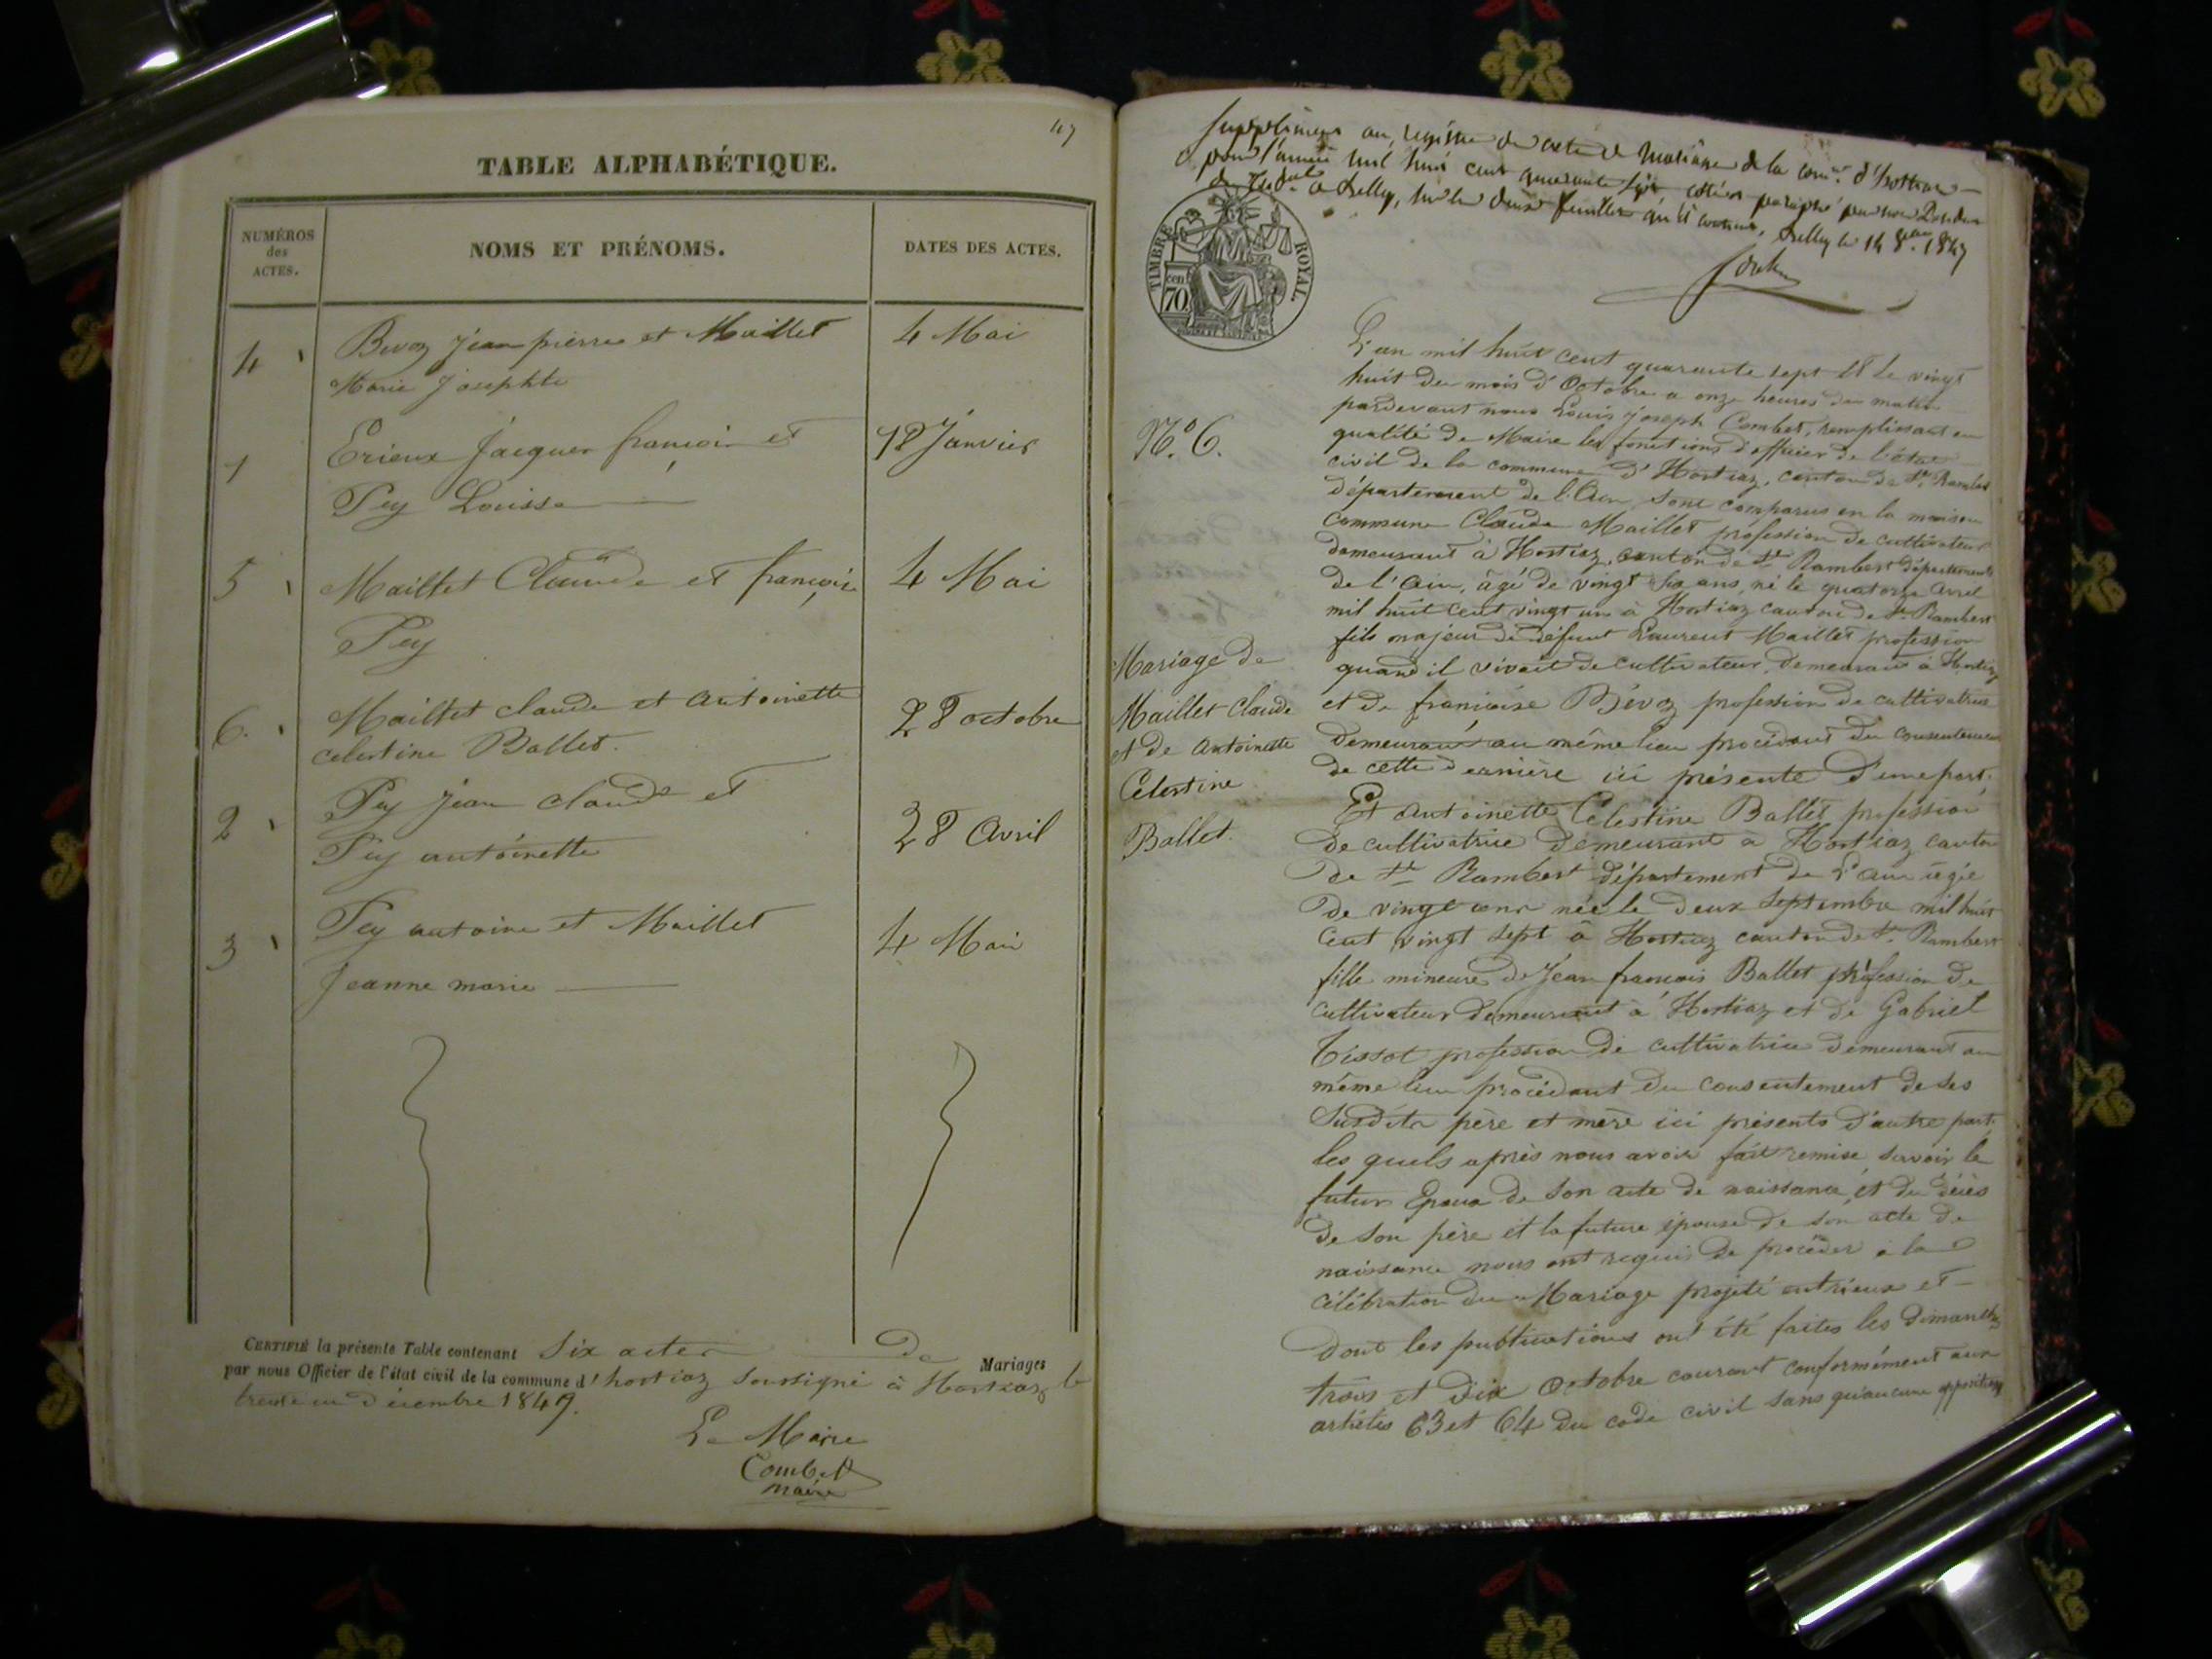 47
TABLE ALPHABÉTIQUE.
NUMÉROS des ACTES.
NOMS ET PRÉNOMS.
DATES DES ACTES.
4 Bévoz Jean pierre et Maillet 4 Mai
Marie Josephte
1 Erieux Jacques françois et 12 Janvier
Pey Louise
5 Maillet Claude et françoise 4 Mai
Pey
6. Maillet claude et antoinette 28 octobre
celestine Ballet.
2 Pey Jean claude et 28 Avril
Pey antoinette
3 Pey antoine et Maillet 4 Mai
Jeanne marie
CERTIFIÉ la présente Table contenant Six actes de Mariages
par nous Officier de l'état civil de la commune d'hostiaz soussigné à Hostiaz le
trente un décembre 1847.
Le Maire
Combet
maire
Supplément au registre des actes de Mariage de la comne d'hostiaz
pour l'année mil huit cent quarante sept coté et paraphé par nous Président
du Tribal à Belley, sur les deux feuilles qu'il contient, Belley le 14 8bre 1847
TIMBRE ROYAL
70 cen
L'an mil huit cent quarante sept et le vingt
huit du mois d'Octobre a onze heures du matin
pardevant nous Louis Joseph Combet, remplissant en
N.º 6.
qualité de Maire les fonctions d'officier de l'état
civil de la commune d'Hostiaz, canton de St Rambert
département de l'Ain, sont comparus en la maison
commune Claude Maillet profession de cultivateur
demeurant à Hostiaz, canton de St Rambert département
de l'Ain, âgé de vingt six ans, né le quatorze avril
mil huit cent vingt un à Hostiaz canton de St Rambert
fils majeur de défunt Laurent Maillet profession
Mariage de
Maillet Claude
et de Antoinette
Célestine
Ballet.
quand il vivait de cultivateur, demeurant à Hostiaz
et de françoise Bévoz profession de cultivatrice
demeurant au même lieu procédant du consentement
de cette dernière ici présente d'une part.
Et antoinette Célestine Ballet profession
de cultivatrice demeurant à Hostiaz canton
de St Rambert département de L'ain âgée
de vingt ans née le deux septembre mil huit
cent vingt sept à Hostiaz canton de St Rambert
fille mineure de Jean françois Ballet profession de
cultivateur demeurant à Hostiaz et de Gabriel
Tissot profession de cultivatrice demeurant au
même lieu procédant du consentement de ses
susdits père et mère ici présents d'autre part.
les quels après nous avoir fait remise savoir le
futur Epoux de son acte de naissance, et du décès
de son père et la future épouse de son acte de
naissance nous ont requis de procéder à la
célébration du Mariage projeté entr'eux et
dont les publications ont été faites les dimanches
trois et dix Octobre courant conformément aux
articles 63 et 64 du code civil sans qu'aucune opposition